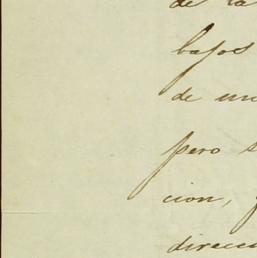 de la
bajos
de un
pero s
cion,
direcc